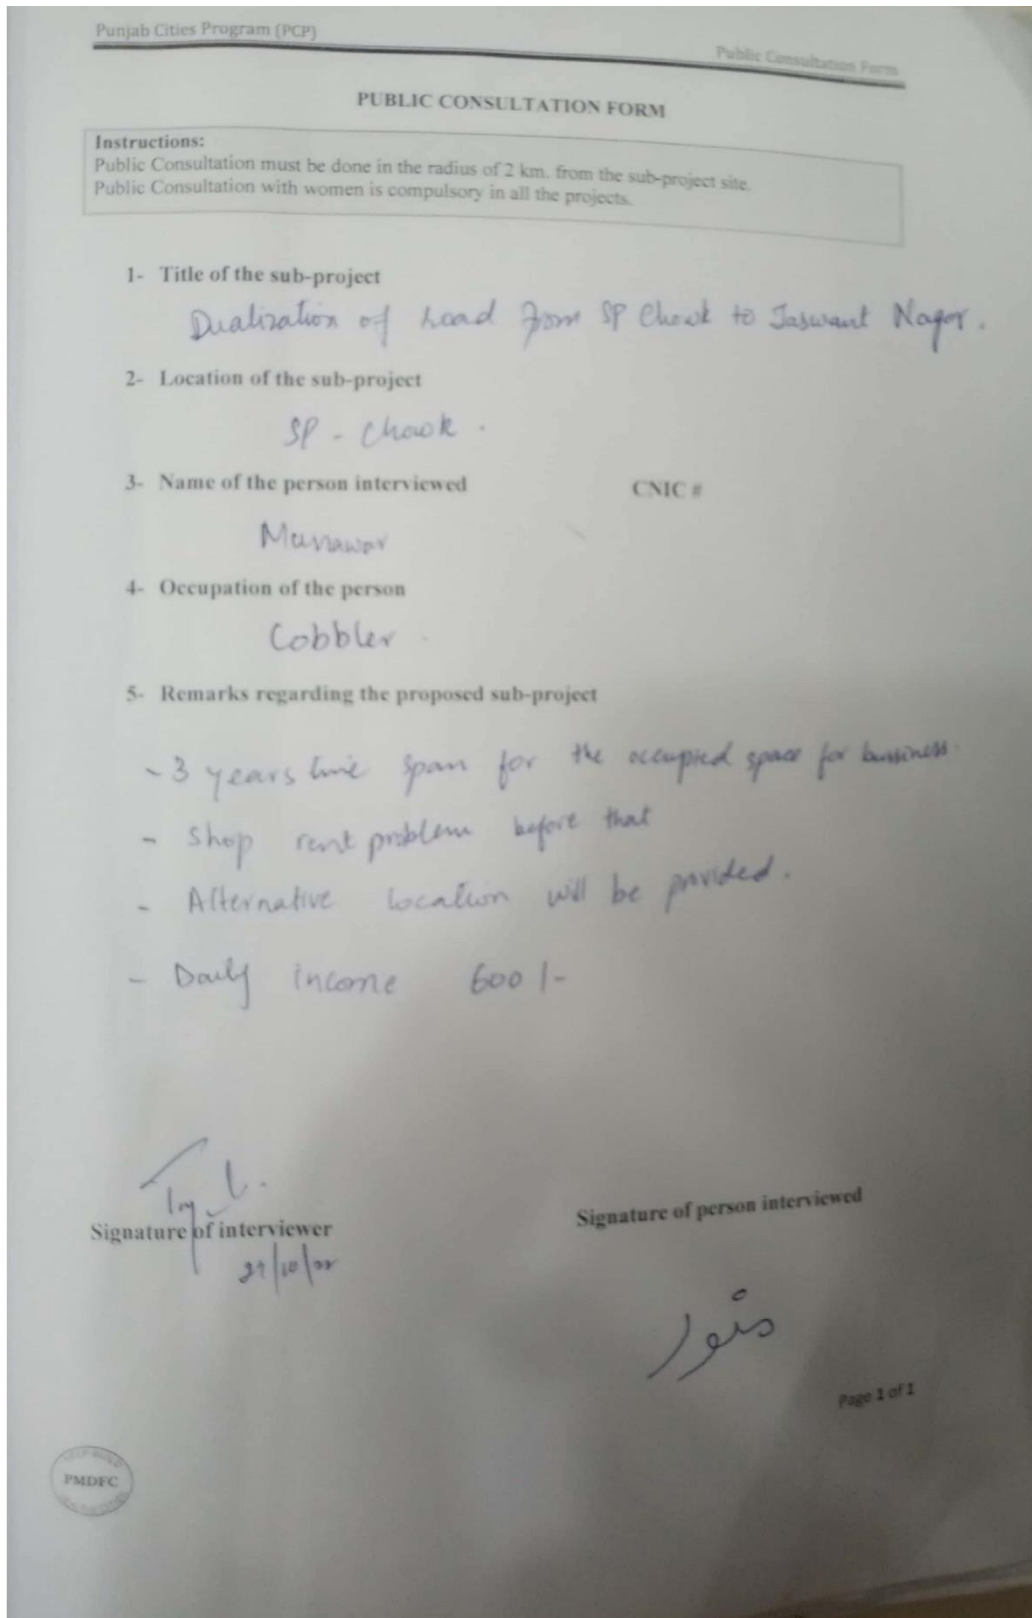 Punjab Cities Program (PCP)
Public Consultation Form
PUBLIC CONSULTATION FORM
Instructions:
Public Consultation must be done in the radius of 2 km. from the sub-project site.
Public Consultation with women is compulsory in all the projects.
1- Title of the sub-project
Dualization of road from SP Chowk to Jaswant Nagar.
2- Location of the sub-project
SP - Chowk.
3- Name of the person interviewed CNIC #
Munawar
4- Occupation of the person
Cobbler
5- Remarks regarding the proposed sub-project
- 3 years time span for the occupied space for bussiness.
- Shop rent problem before that
- Alternative location will be provided.
- Daily income 600/-
Signature of interviewer
Signature of person interviewed
منور
Page 1 of 1
PMDFC